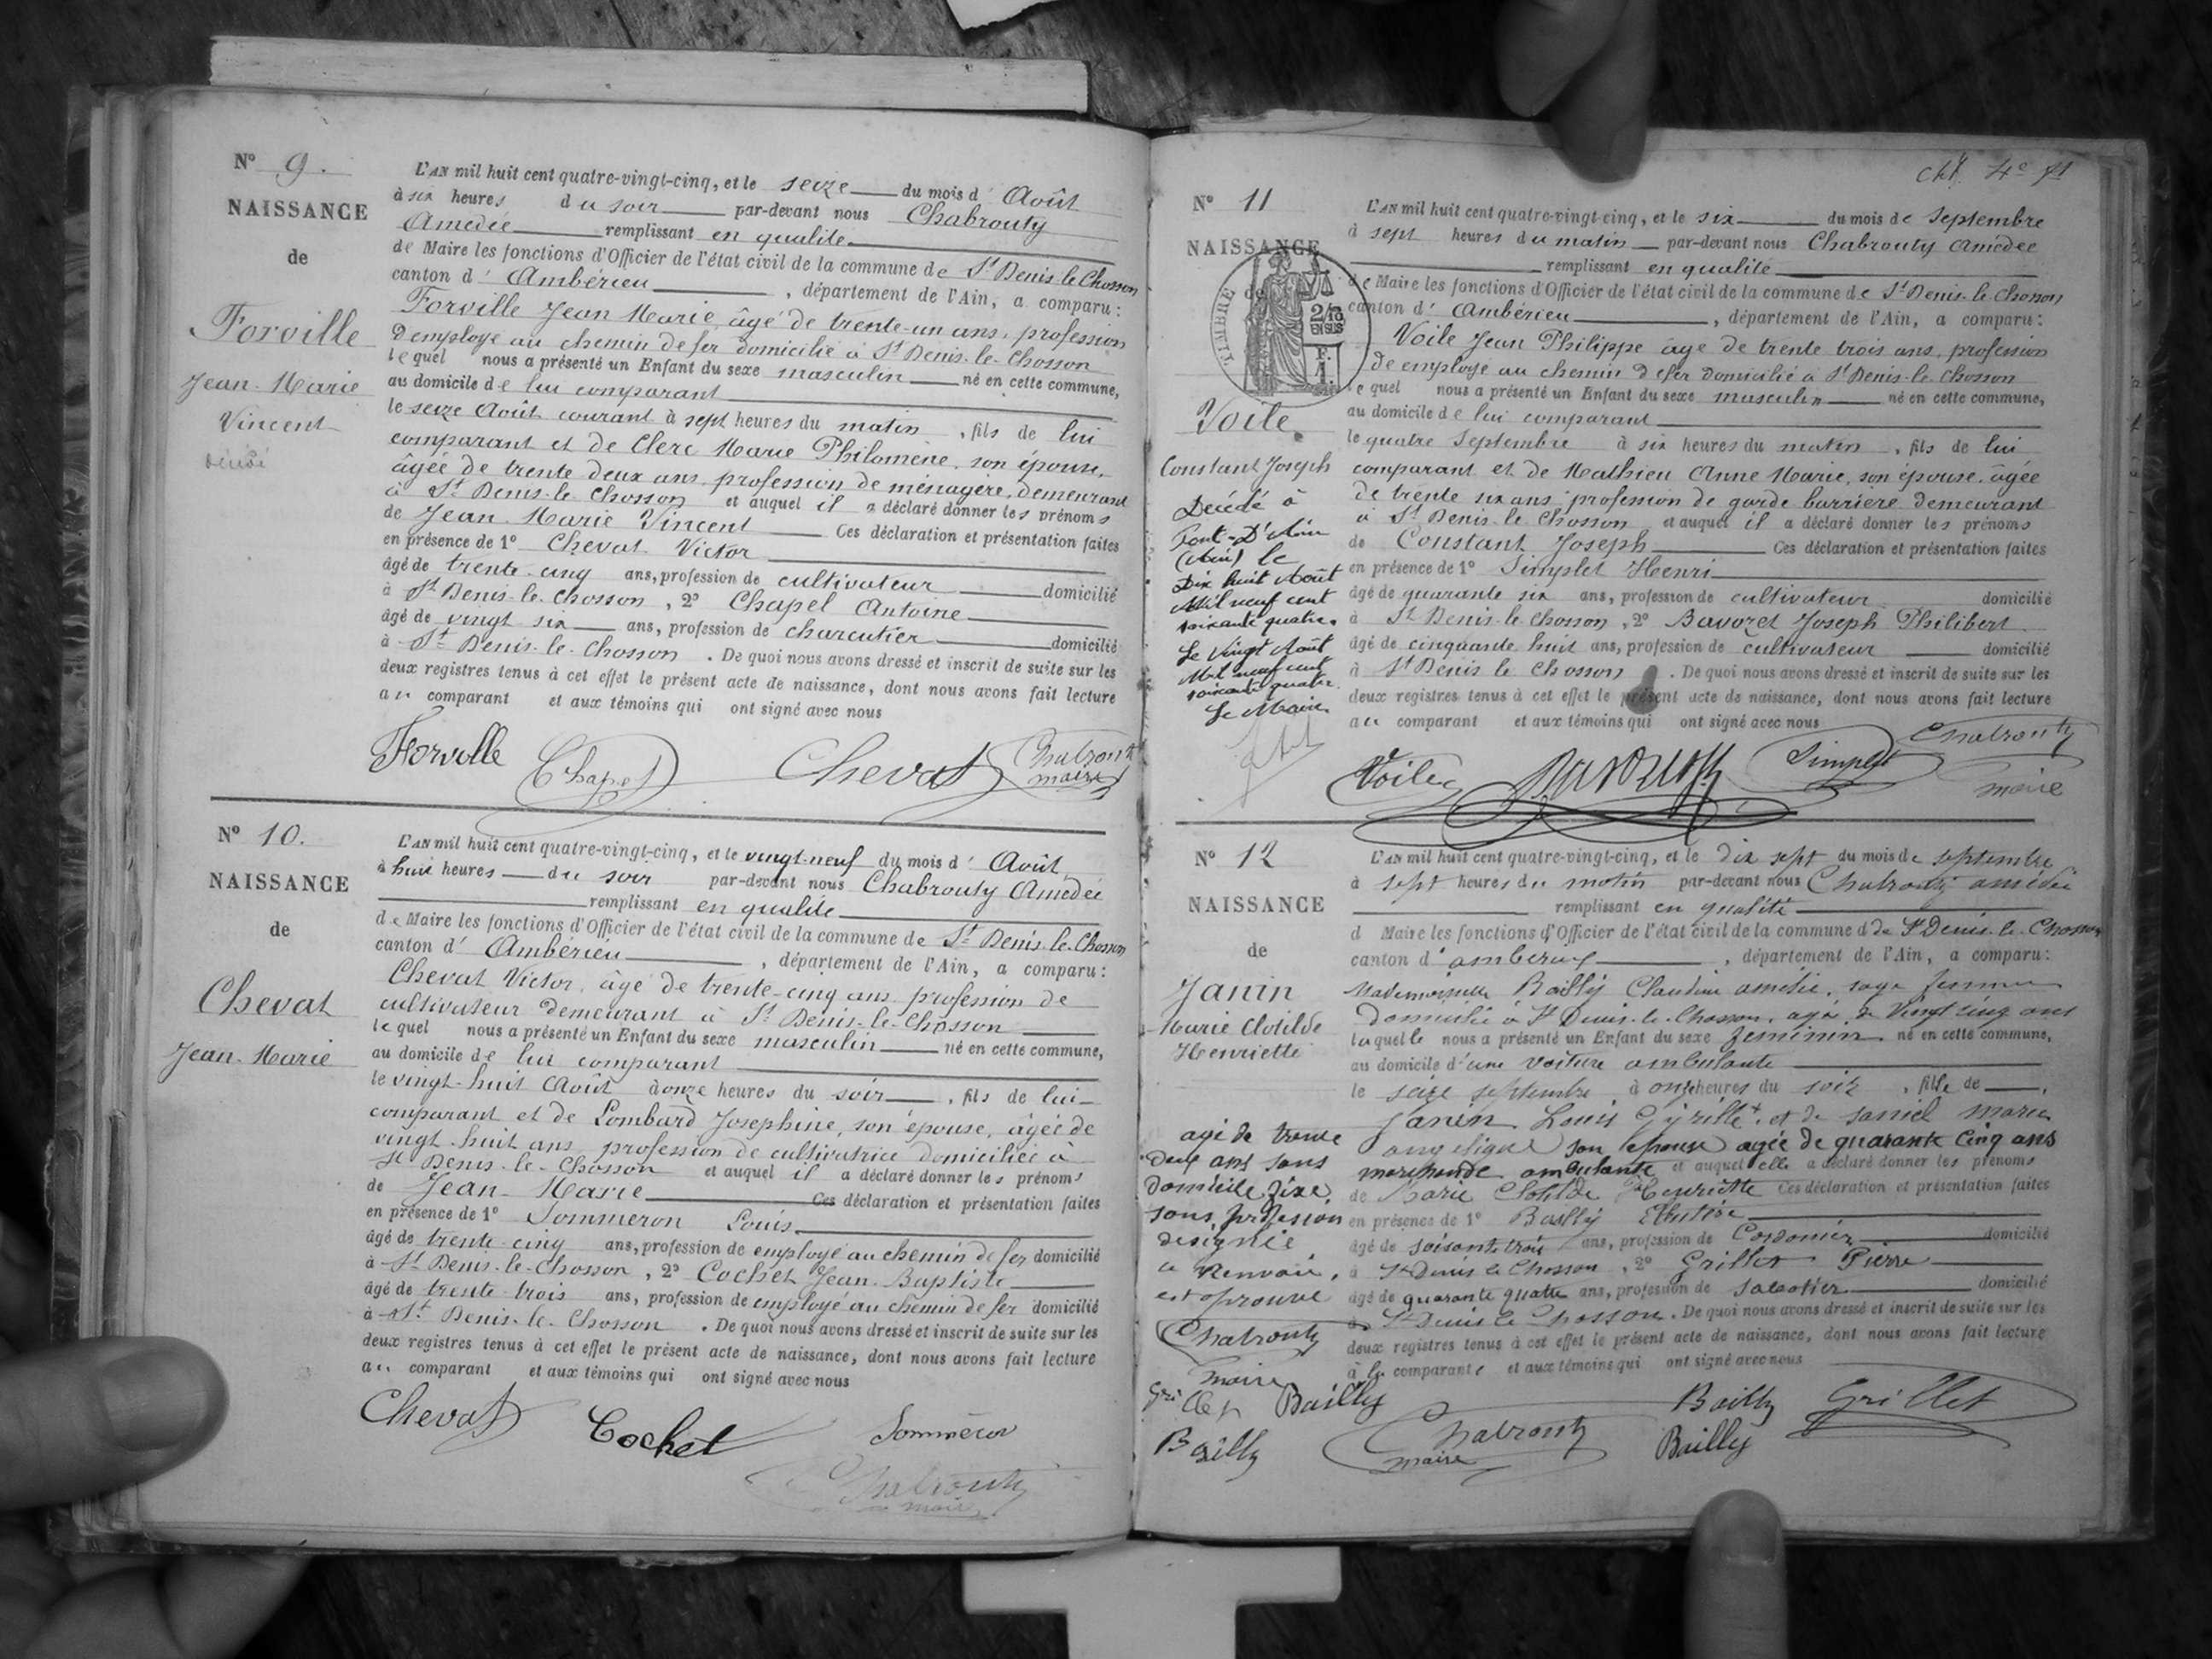 N° 9.
NAISSANCE
de
Forville
Jean-Marie
Vincent
L'AN mil huit cent quatre-vingt-cinq, et le seize du mois d' Août
à six heures du soir par-devant nous Chabrouty
Amédée remplissant en qualité
de Maire les fonctions d'Officier de l'état civil de la commune de St Denis-le-Chosson
canton d' Ambérieu, département de l'Ain, a comparu:
Forville Jean Marie, âgé de trente-un ans, profession
D'employé au chemin de fer domicilié à St Denis-le-Chosson
lequel nous a présenté un Enfant du sexe masculin né en cette commune,
au domicile de lui comparant
le seize Août courant à sept heures du matin, fils de lui
comparant et de Clerc Marie Philomène, son épouse,
âgée de trente deux ans, profession de ménagère, demeurant
à St Denis-le-Chosson et auquel il a déclaré donner les prénoms
de Jean-Marie Vincent Ces déclaration et présentation faites
en présence de 1° Chevat Victor
âgé de trente-cinq ans, profession de cultivateur domicilié
à St Denis-le-Chosson, 2° Chapel Antoine
âgé de vingt six ans, profession de charcutier domicilié
à St Denis-le-Chosson. De quoi nous avons dressé et inscrit de suite sur les
deux registres tenus à cet effet le présent acte de naissance, dont nous avons fait lecture
au comparant et aux témoins qui ont signé avec nous
Forville Chapel Chevat Chabrouty
maire
N° 10.
NAISSANCE
de
Chevat
Jean-Marie
L'AN mil huit cent quatre-vingt-cinq, et le vingt-neuf du mois d' Août
à huit heures du soir par-devant nous Chabrouty Amédée
remplissant en qualité
de Maire les fonctions d'Officier de l'état civil de la commune de St Denis-le-Chosson
canton d' Ambérieu, département de l'Ain, a comparu:
Chevat Victor, âgé de trente-cinq ans, profession de
cultivateur demeurant à St Denis-le-Chosson
lequel nous a présenté un Enfant du sexe masculin né en cette commune,
au domicile de lui comparant
le vingt-huit Août à onze heures du soir, fils de lui
comparant et de Lombard Josephine, son épouse, âgée de
vingt-huit ans, profession de cultivatrice domiciliée à
St Denis-le-Chosson et auquel il a déclaré donner les prénoms
de Jean-Marie Ces déclaration et présentation faites
en présence de 1° Sommeron Louis
âgé de trente-cinq ans, profession de employé au chemin de fer domicilié
à St Denis-le-Chosson, 2° Cochet Jean-Baptiste
âgé de trente-trois ans, profession de employé au chemin de fer domicilié
à St Denis-le-Chosson. De quoi nous avons dressé et inscrit de suite sur les
deux registres tenus à cet effet le présent acte de naissance, dont nous avons fait lecture
au comparant et aux témoins qui ont signé avec nous
Chevat Cochet Sommeron
Chabrouty
maire
N° 11
NAISSANCE
de
TIMBRE
2/10
EN SUS
Voile
Constant Joseph
Décédé à
Pont-D'Ain
(Ain) le
Dix huit Août
Mil neuf cent
soixante quatre.
Le Vingt Août
Mil neuf cent
soixante quatre.
Le Maire
L'AN mil huit cent quatre-vingt-cinq, et le six du mois de Septembre
à sept heures du matin par-devant nous Chabrouty Amédée
remplissant en qualité
de Maire les fonctions d'Officier de l'état civil de la commune de St Denis-le-Chosson
canton d' Ambérieu, département de l'Ain, a comparu:
Voile Jean Philippe âgé de trente trois ans, profession
de employé au chemin de fer domicilié à St Denis-le-Chosson
lequel nous a présenté un Enfant du sexe masculin né en cette commune,
au domicile de lui comparant
le quatre Septembre à six heures du matin, fils de lui
comparant et de Mathieu Anne Marie, son épouse, âgée
de trente six ans, profession de garde barrière demeurant
à St Denis-le-Chosson et auquel il a déclaré donner les prénoms
de Constant Joseph Ces déclaration et présentation faites
en présence de 1° Simplet Henri
âgé de quarante six ans, profession de cultivateur domicilié
à St Denis-le-Chosson, 2° Bavozet Joseph Philibert
âgé de cinquante huit ans, profession de cultivateur domicilié
à St Denis le Chosson. De quoi nous avons dressé et inscrit de suite sur les
deux registres tenus à cet effet le présent acte de naissance, dont nous avons fait lecture
au comparant et aux témoins qui ont signé avec nous
Voile Simplet Chabrouty
maire
N° 12
NAISSANCE
de
Janin
Marie Clotilde
Henriette
agé de trente
deux ans sans
domicile fixe,
sans profession
designée
a Renvoie,
approuvé
Chabrouty
maire
Grillet Bailly
Bailly
L'AN mil huit cent quatre-vingt-cinq, et le dix sept du mois de septembre
à sept heures du matin par-devant nous Chabrouty amédée
remplissant en qualité
d Maire les fonctions d'Officier de l'état civil de la commune d de St Denis-le-Chosson
canton d' amberieux, département de l'Ain, a comparu:
Mademoiselle Bailly Claudine amélie, sage femme
domicilié à St Denis-le-Chosson, agé de vingt cinq ans
laquelle nous a présenté un Enfant du sexe feminin né en cette commune,
au domicile d'une voiture ambulante
le seize septembre à onze heures du soir, fille de
Janin Louis Cyrille + et de marie
angelique son epouse agée de quarante cinq ans
marchande ambulante et auquel elle a déclaré donner les prénoms
de Marie Clotilde Henriette Ces déclaration et présentation faites
en présence de 1° Bailly
âgé de soisante trois ans, profession de Cordonier domicilié
à St Denis le Chosson, 2° Grillet Pierre
âgé de quarante quatre ans, profession de sabotier domicilié
à St Denis le Chosson. De quoi nous avons dressé et inscrit de suite sur les
deux registres tenus à cet effet le présent acte de naissance, dont nous avons fait lecture
à la comparante et aux témoins qui ont signé avec nous
Bailly Grillet
Chabrouty Bailly
maire